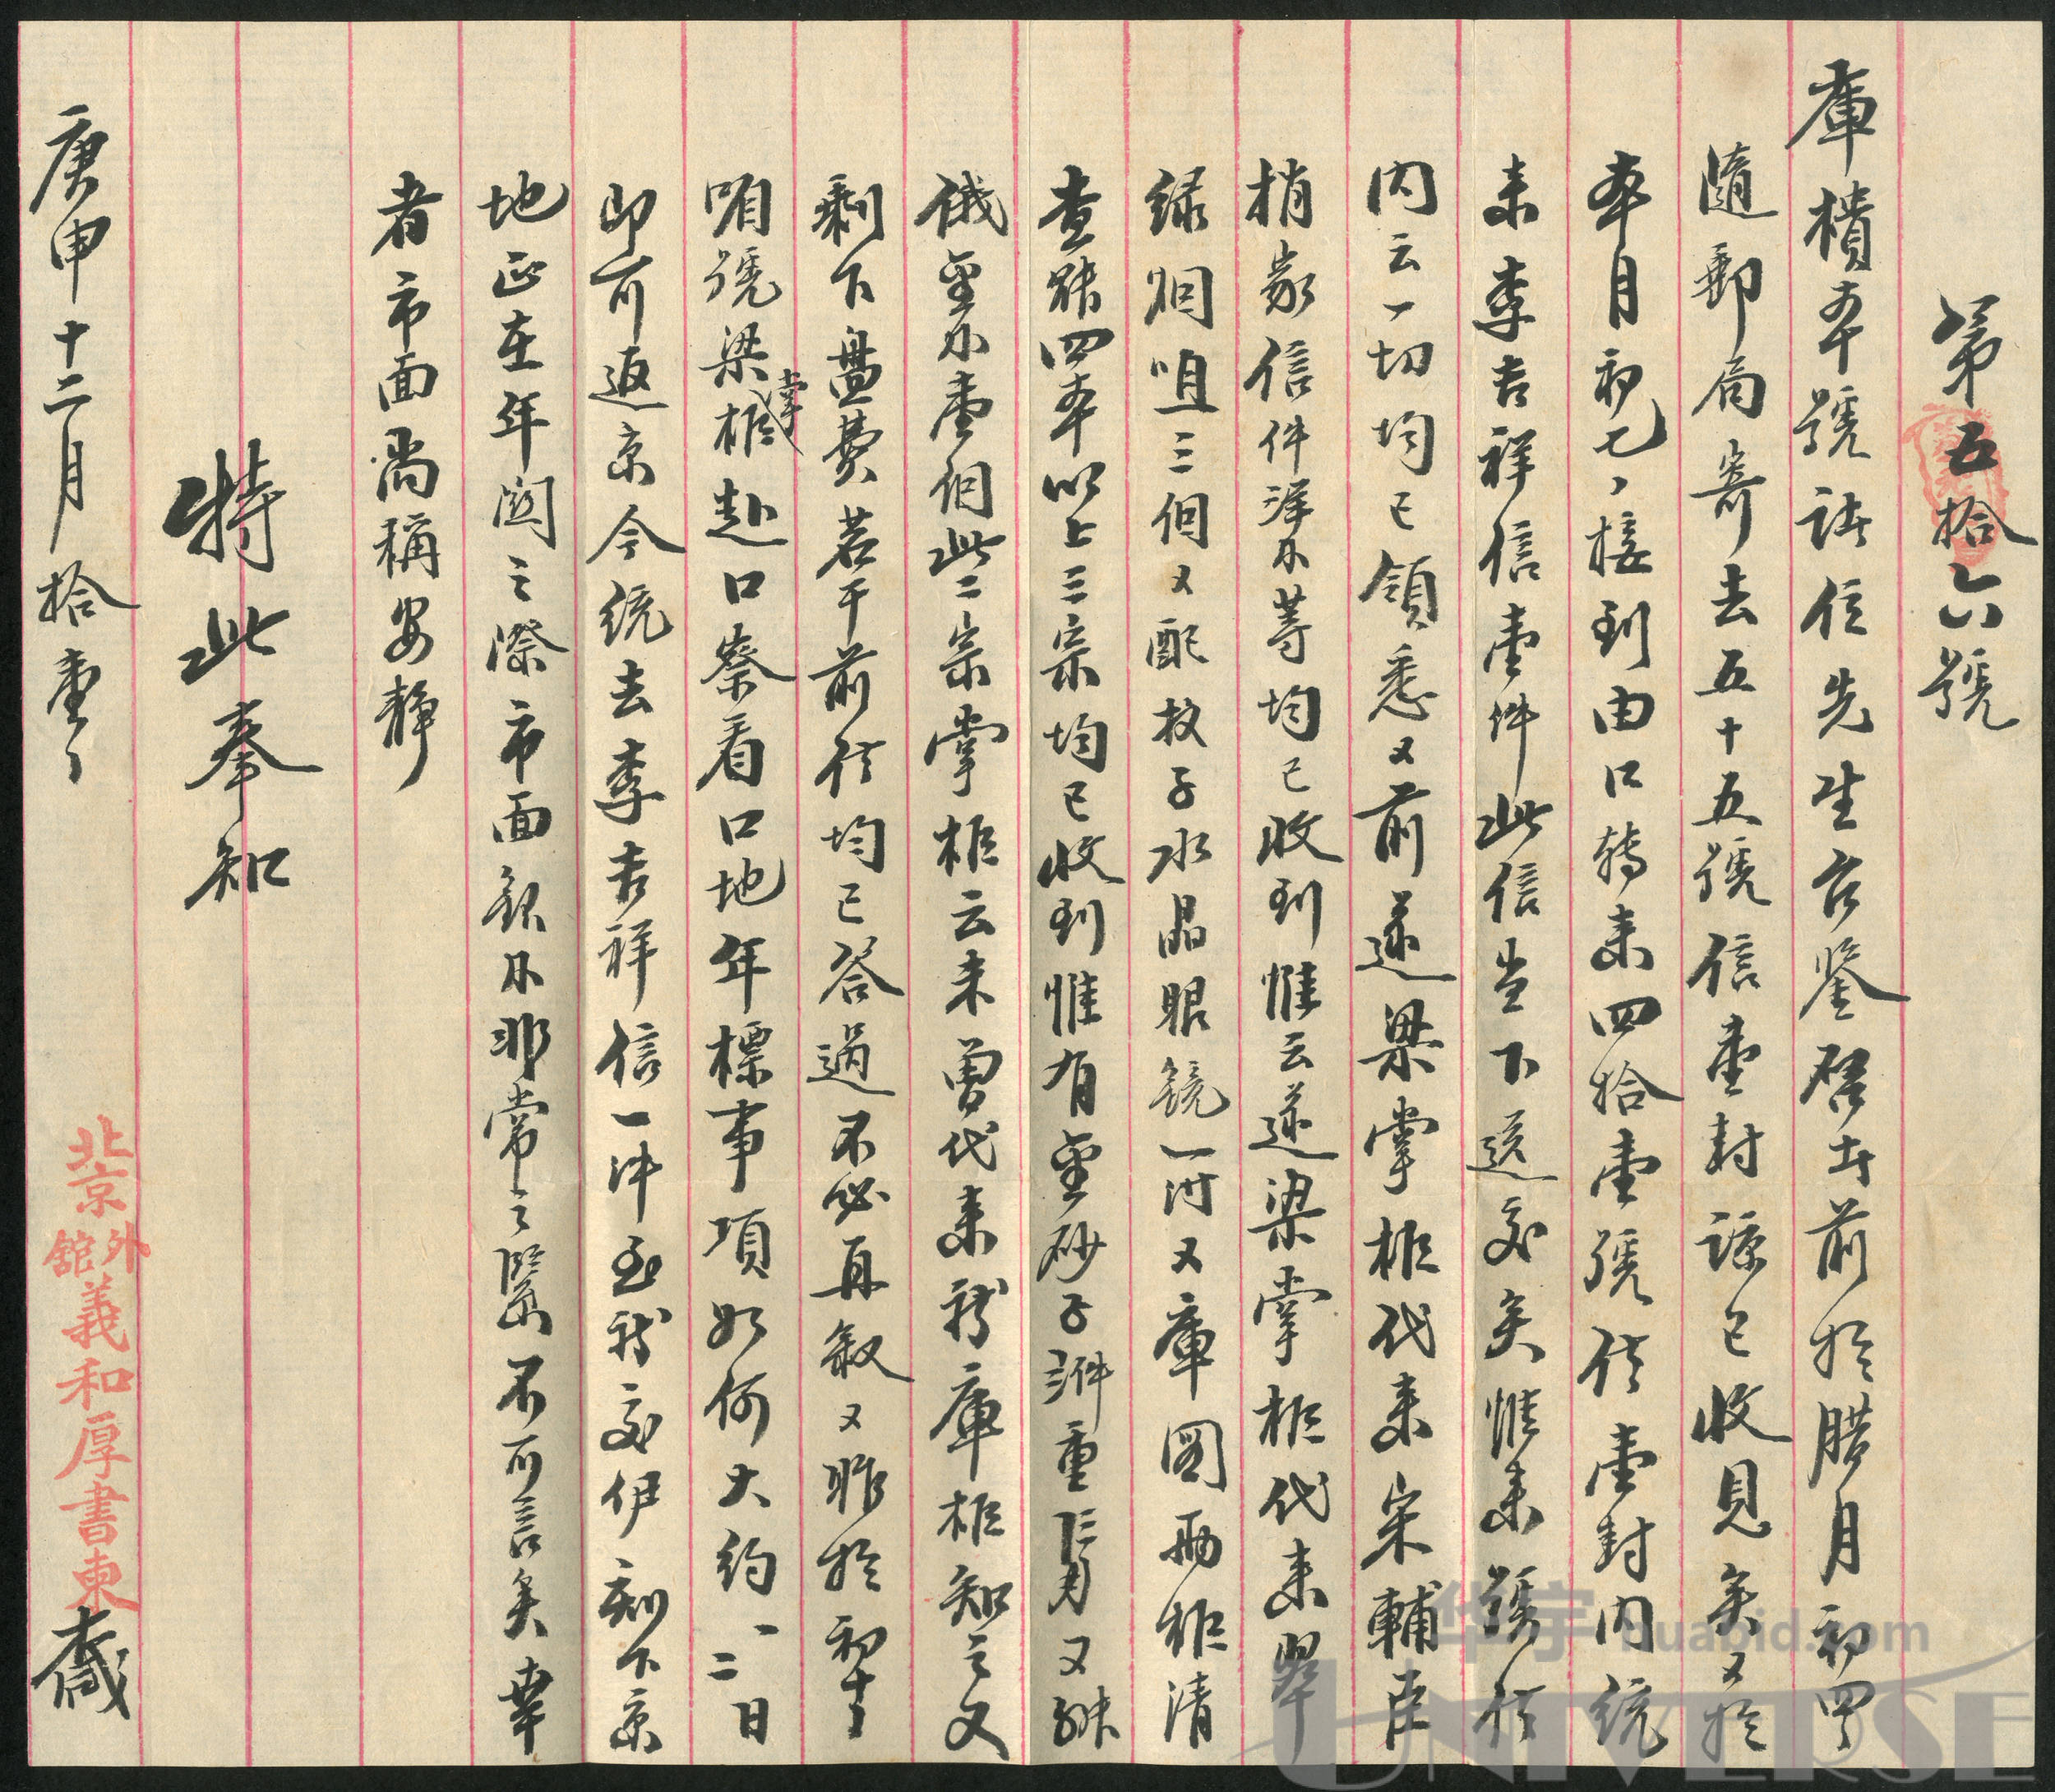 第五拾六號
庫櫃本號諸位先生台鑒啓者前於腊月初四日
隨郵局寄去五十五號信壹封諒已收見矣又於
本月初七日接到由口轉來四拾壹號信壹封內統
來李吉祥信壹件此信當下送交矣惟來號信
內云一切均已領悉又前遞梁掌柜代來宋輔臣
捎家信件洋布等均已收到惟云遞梁掌柜代來翠
綠烟咀三個又配杖子水晶眼鏡一付又庫圖兩柜清
查賬四本以上三宗均已收到惟有金砂子三件重又
俄金壹個此二宗掌柜云未曾代來祈庫柜知之又
剩下盤費若干前信均已答過不必再叙又昨於初十日
咱號梁掌柜赴口察看口地年標事項如何大約一二日
即可返京今統去李吉祥信一件至祈交伊刻下京
地正在年関之際市面銀非常之緊不可言矣幸
者市面尚稱安静
特此奉知
庚申十二月拾壹日
北京外館義和厚書柬
华宇 huabid.com
UNIVERSE